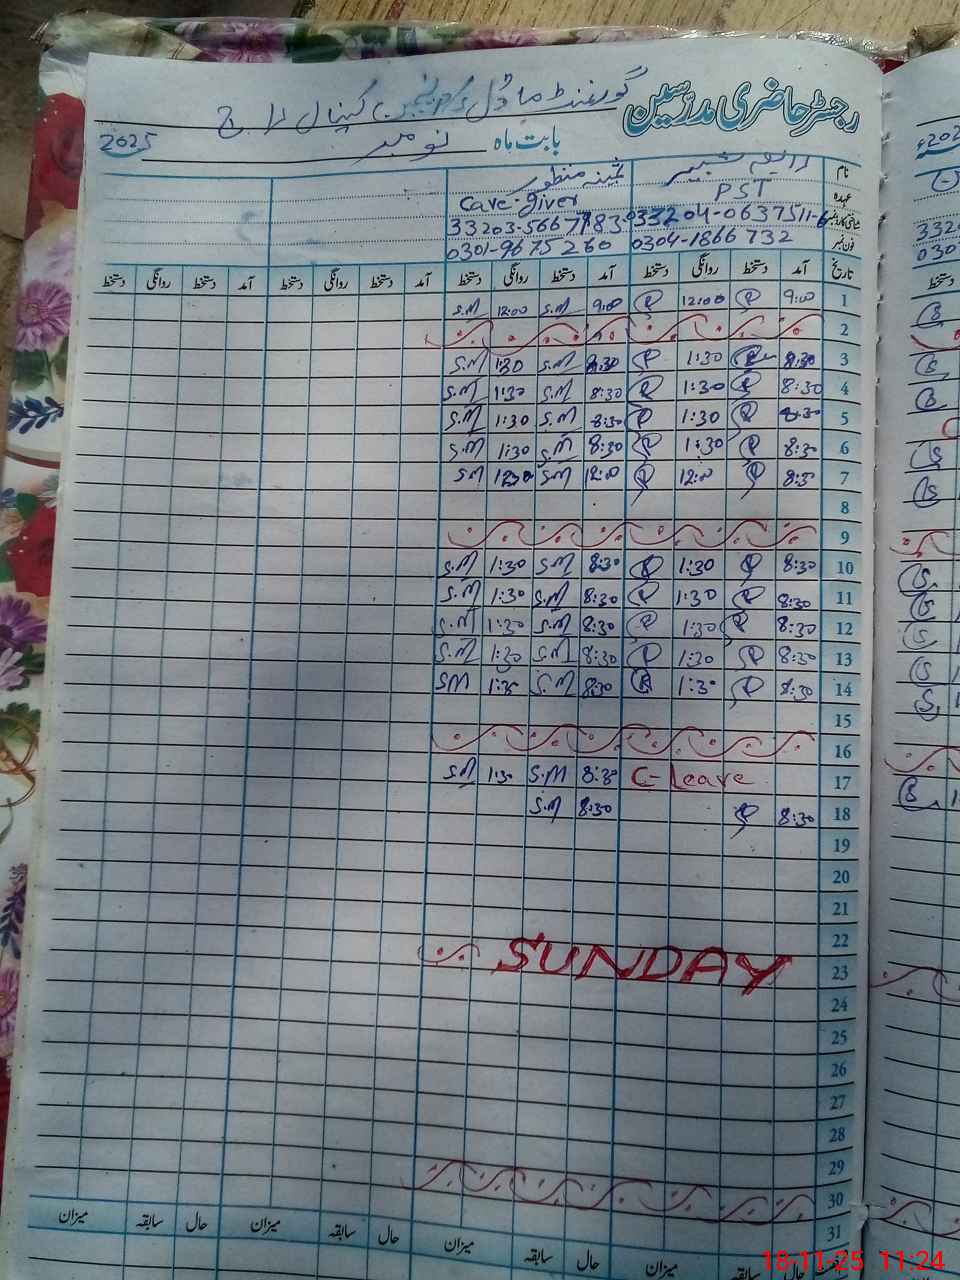 رجسٹر حاضری مدرسین
گورنمنٹ ماڈل کینال
بابت ماہ نومبر 2025
نام شبیر ثمینہ منظور
عہدہ PST Care-giver
33204-0637511-6
فون نمبر 0304-1866732 0301-9675260
تاریخ آمد دستخط روانگی دستخط آمد دستخط روانگی دستخط آمد دستخط روانگی دستخط آمد دستخط روانگی دستخط
1 9:00 12:00 9:00 S.M 12:00 S.M
2
3 8:30 1:30 8:30 S.M 1:30 S.M
4 8:30 1:30 8:30 S.M 1:30 S.M
5 8:30 1:30 8:30 S.M 1:30 S.M
6 8:30 1:30 8:30 S.M 1:30 S.M
7 8:30 12:00 12:00 SM SM
8
9
10 8:30 1:30 8:30 S.M 1:30 S.M
11 8:30 1:30 8:30 S.M 1:30 S.M
12 8:30 1:30 8:30 S.M 1:30 S.M
13 8:30 1:30 8:30 S.M 1:30 S.M
14 8:30 1:30 8:30 S.M 1:30 SM
15
16
17 C-Leave 8:30 S.M 1:30 S.M
18 8:30 8:30 S.M
19
20
21
22
23 SUNDAY
24
25
26
27
28
29
30
31
حال سابقہ میزان حال سابقہ میزان حال سابقہ میزان حال سابقہ میزان
18-11-25 11:24